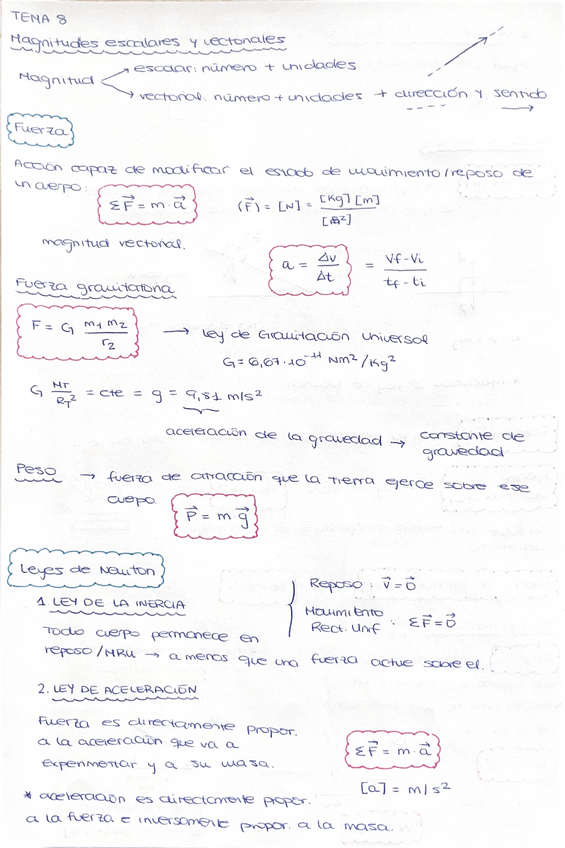 TEMA 8
Magnitudes escalares y vectoriales
Magnitud
escalar: número + unidades
vectorial: número + unidades + dirección y sentido
Fuerza
Acción capaz de modificar el estado de movimiento/reposo de
un cuerpo:
ΣF⃗ = m·a⃗
(F⃗) = [N] = [Kg][m] / [s²]
magnitud vectorial.
a = Δv/Δt = Vf-Vi / tf-ti
Fuerza gravitatoria
F = G m1 m2 / r2 → Ley de Gravitación Universal
G = 6,67·10⁻¹¹ Nm²/Kg²
G MT/RT² = cte = g = 9,81 m/s²
aceleración de la gravedad → constante de
gravedad
Peso → fuerza de atracción que la tierra ejerce sobre ese
cuerpo.
P⃗ = m·g⃗
Leyes de Newton
1. LEY DE LA INERCIA
Todo cuerpo permanece en
reposo/MRU → a menos que una fuerza actue sobre el.
Reposo: v⃗ = 0⃗
Movimiento
Rect. Unif : ΣF⃗ = 0⃗
2. LEY DE ACELERACIÓN
Fuerza es directamente propor.
a la aceleración que va a
experimentar y a su masa.
ΣF⃗ = m·a⃗
[a] = m/s²
* aceleración es directamente propor.
a la fuerza e inversamente propor. a la masa.